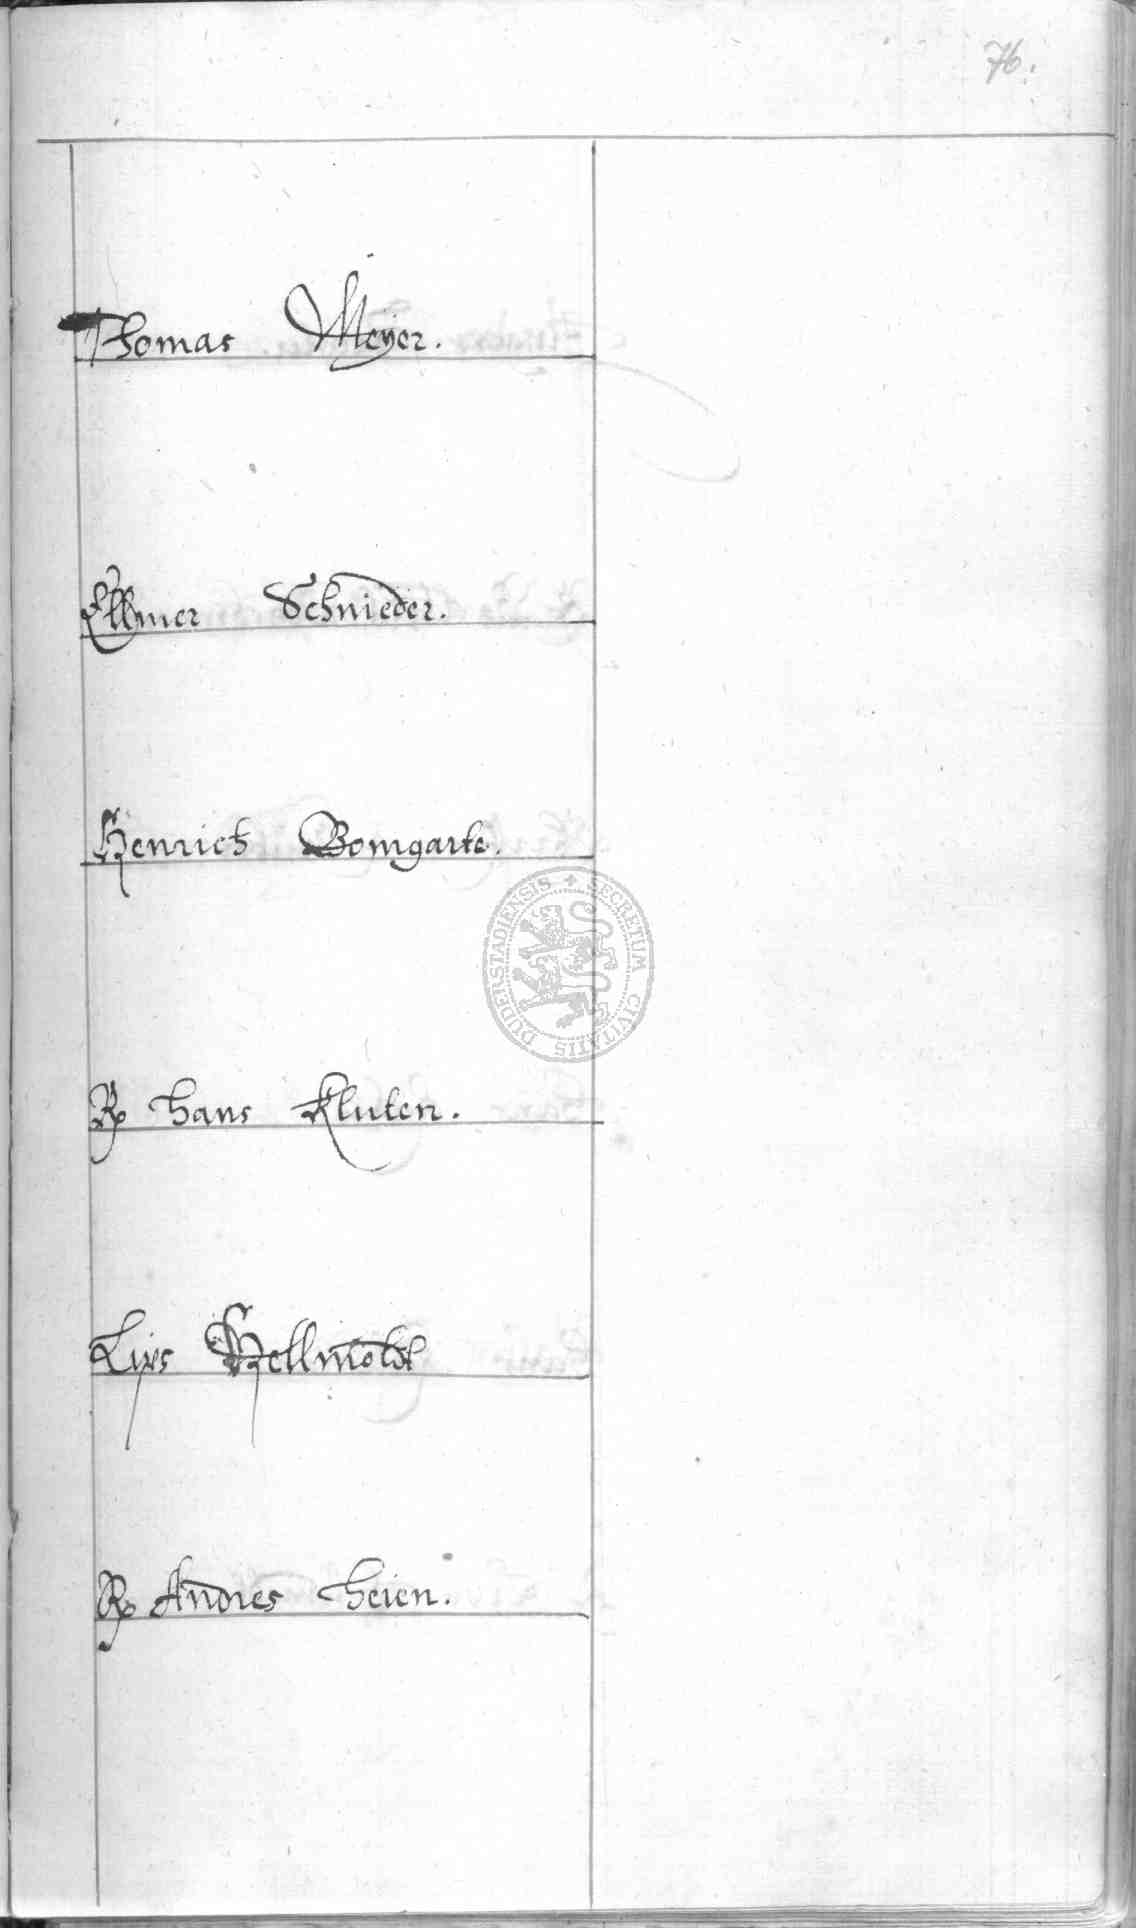 76.
Thomas Meyer.
Ellmer Schnieder.
Henrich Bomgarte.
SECRETUM CIVITATIS DUDERSTADIENSIS
R Hans Kluten.
Lips Hellmoldt
R Andres Heien.